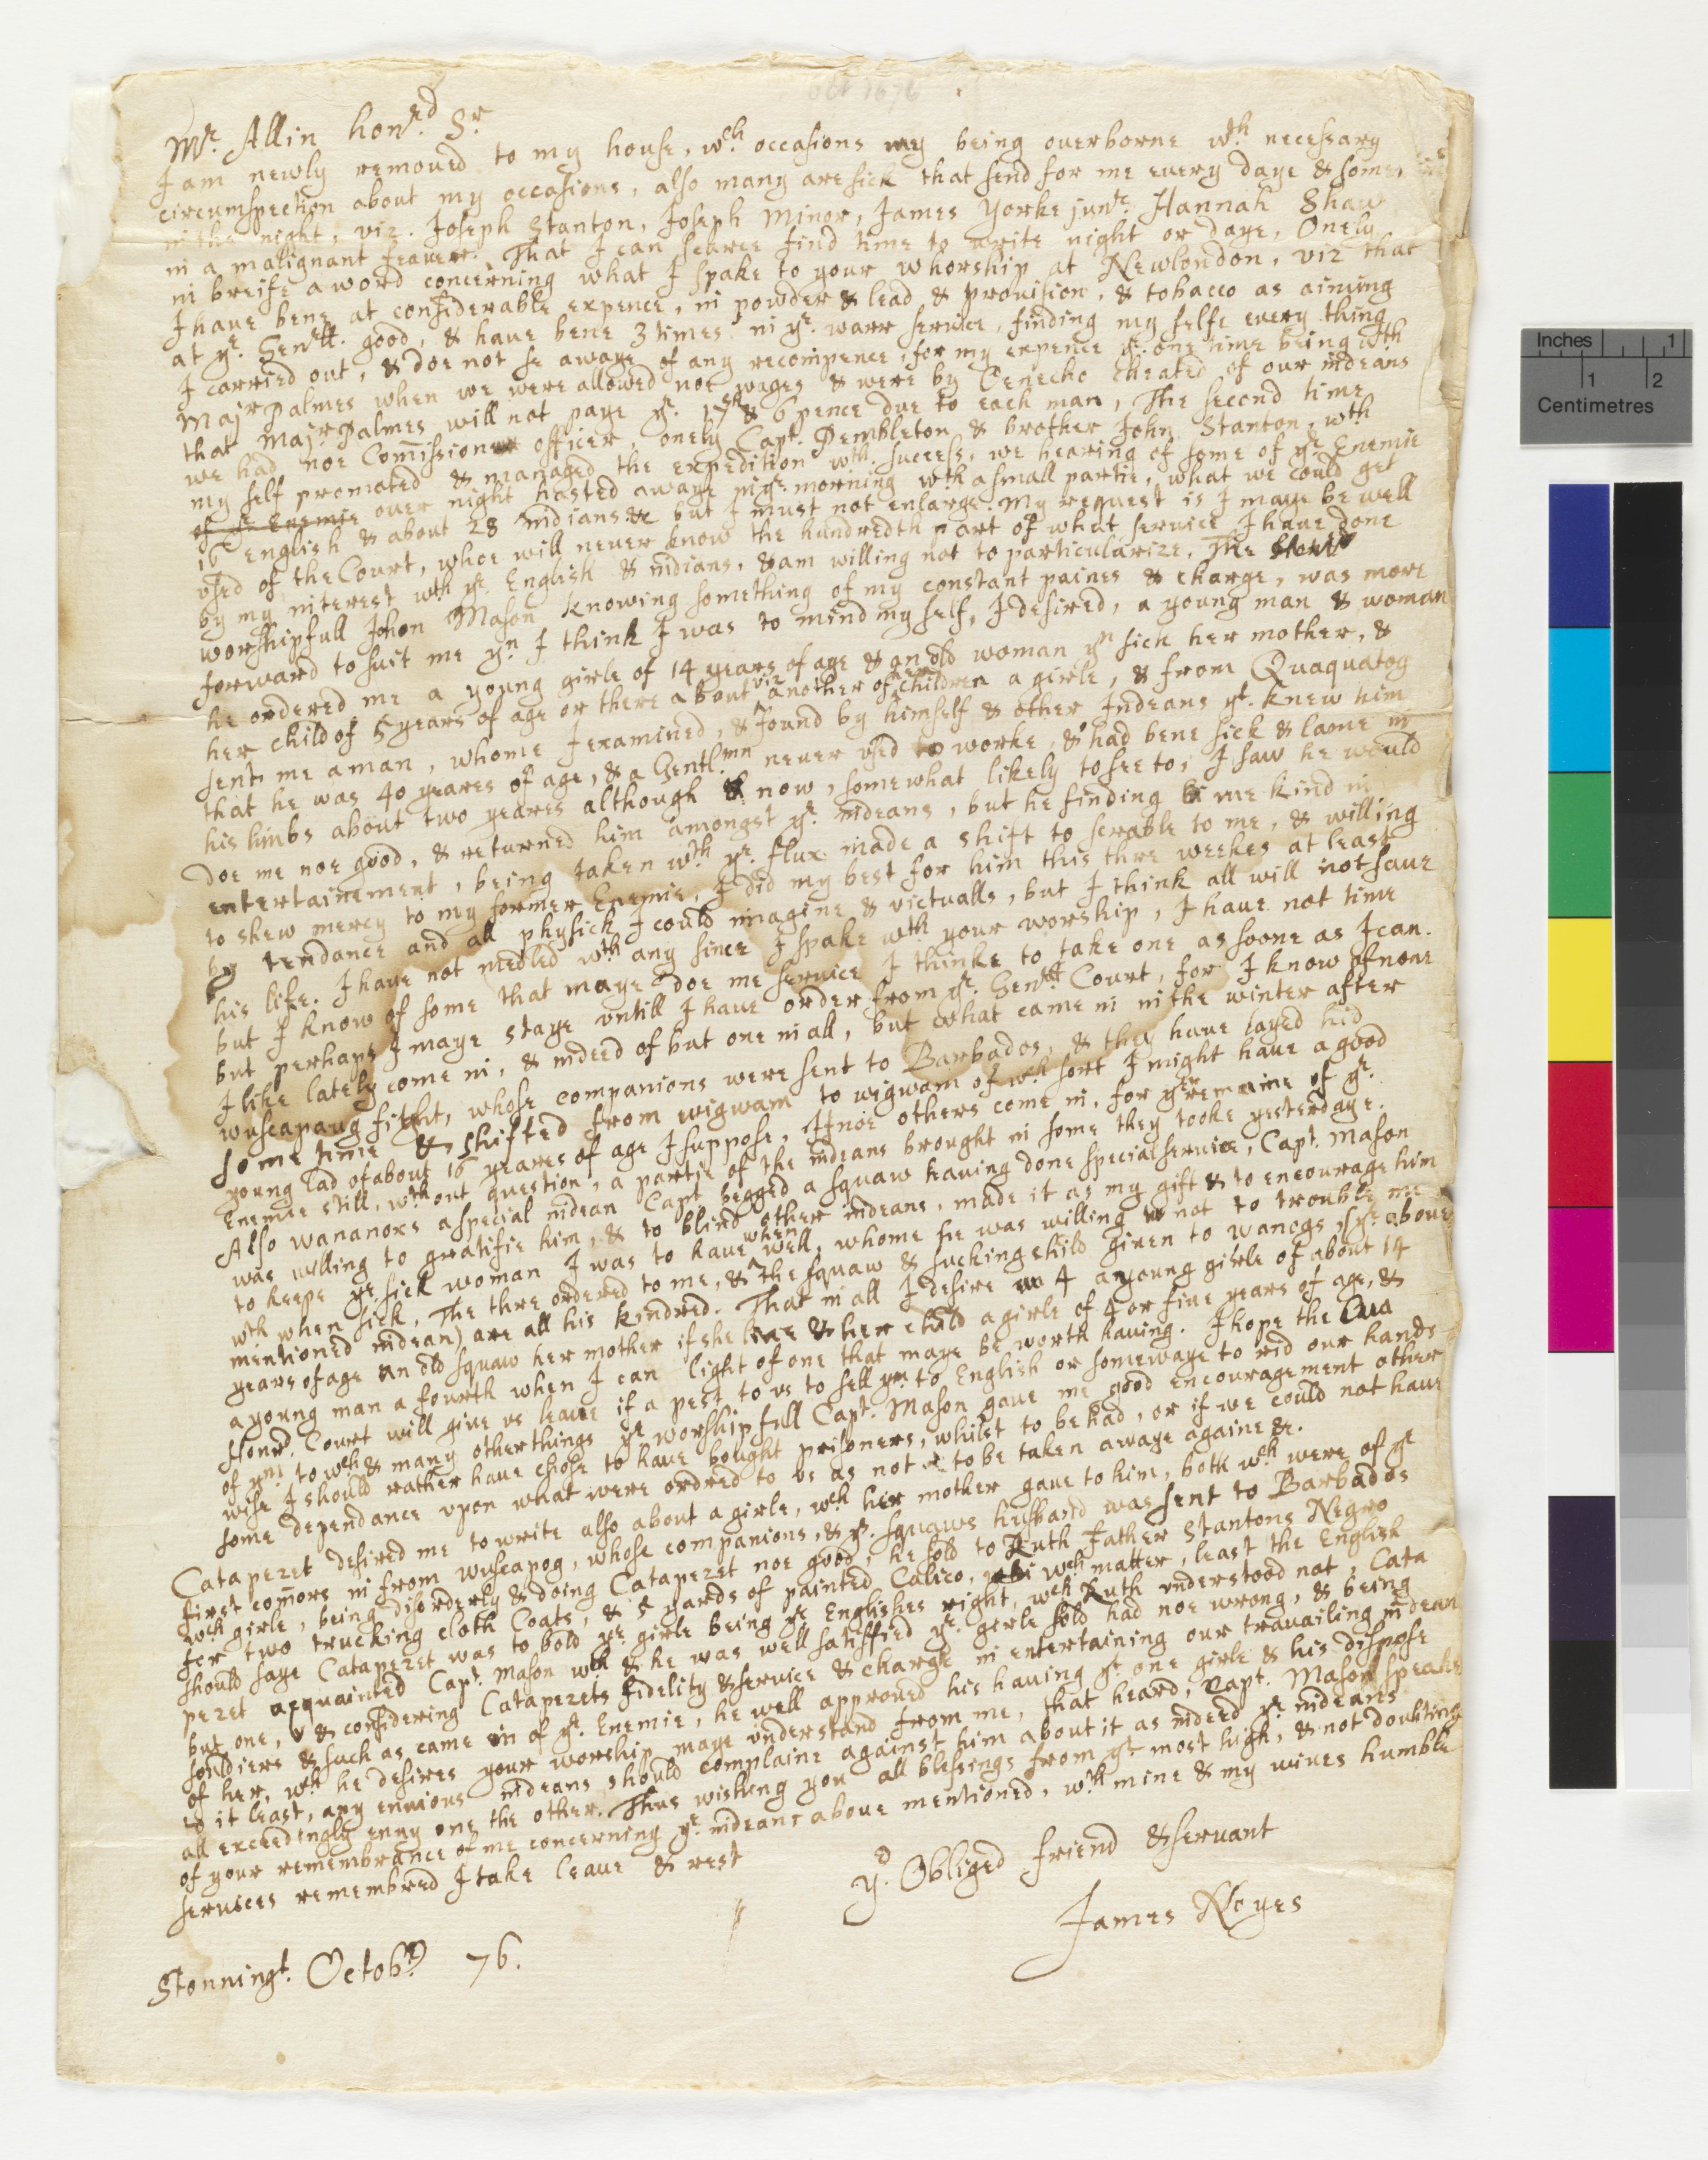 Oct 1676
Mr. Allin honrd. Sr
I am newly removed to my house, wch. occasions my being overborne wth. necessary
circumspection about my occasions, also many are sick that send for me every daye & some
in the night, viz. Joseph Stanton, Joseph Minor, James Yorke junr. Hannah Shaw
in a malignant feaver. That I can scarce find time to write night or daye, Onely
in breife a word concerning what I spake to your whorship at Newlondon, viz that
I have bene at considerable expence, in powder & lead & provision, & tobacco as aiming
at ye. Genrll. good, & have bene 3 times in ye. warr service, finding my selfe every thing
I carried out, & doe not se awaye of any recompence, for my expence ye. one time being wth
Majr Palmes when we were allowed noe wages & were by Cenecho cheated of our indeans
that Majr. Palmes will not paye ye. 17sh & 6 pence due to each man, The second time
we had noe Comissioner officer, onely Capt. Pembleton & brother John Stanton, wth
my self promoted & managed the expedition wth. success, we hearing of some of ye Enemie
of ye Enemie over night hasted awaye in ye. morning wth a small partie, what we could get
16 english & about 28 indians &c but I must not enlarge. My request is I maye be well
used of the Court, whoe will never know the hundredth part of what service I have done
by my interest wth ye English & indians, & am willing not to particularize. The
worshipfull John Mason knowing something of my constant paines & charge, was more
forward to suit me yn I think I was to mind my self, I desired, a young man & woman
he ordered me a young girle of 14 years of age & an old woman yn sick her mother, &
her child of 5 years of age or there about viz another of her children a girle, & from Quaquatog
sent me a man, whome I examined, & found by himself & other Indeans yt. knew him
that he was 40 yeares of age, & a Gentl.mn never used to worke, & had bene sick & lame in
his limbs about two yeares although now, somewhat likely to see to, I saw he would
doe me noe good, & returned him amongst ye. indeans, but he finding me kind in
entertainement, being taken wth ye. flux made a shift to scrable to me, & willing
to shew mercy to my former Enemie, I did my best for him this thre weekes at least
by tendance and all physick I could imagine & victualls, but I think all will not save
his life. I have not medled wth any since I spake wth your worship, I have not time
but I know of some that maye doe me service I thinke to take one as soone as I can.
but perhaps I maye staye untill I have order from ye. Genrll Court, for I know of none
I like lately come in, & indeed of but one in all, but what came in in the winter after
wuscapaug fight, whose companions were sent to Barbados, & they have layed hid
some time & shifted from wigwam to wigwam of wch sort I might have a good
young lad of about 16 yeares of age I suppose, If noe others come in, for yr remaine of ye.
Enemie still, wthout question, a partie of the indeans brought in some they tooke yesterdaye.
Also wananoxe a special indean Capt begged a squaw having done special service, Capt. Mason
was willing to gratifie him, & to blind other indeans, made it as my gift & to encourage him
to keepe ye sick woman I was to have when well, whome he was willing not to trouble me
wth when sick, The thre ordered to me, & the squaw & sucking child given to wanogs (ye. above
mentioned indean) are all his kindred. That in all I desire 4 a young girle of about 14
years of age an old squaw her mother if she live & her child a girle of 4 or five years of age, &
a young man a fourth when I can light of one that maye be worth having. I hope the
Honrd. Court will give us leave if a pest to us to sell ym to English or somewaye to rid our hands
of ym to wch & many other things ye worshipfull Capt. Mason gave me good encouragement other
wise I should rather have chose to have bought prisoners, whilst to be had, or if we could not have
some dependance upon what were ordred to us as not to be taken awaye againe &c.
Cataperet desired me to write also about a girle, wch her mother gave to him, both wch were of ye
first comors in from wuscapog, whose companions, & ye. squaws husband was sent to Barbados
wch girle, being disorderly & doing Cataperet noe good, he sold to Ruth Father Stantons Negro
for two trucking cloth Coats, & 5 yards of painted Calico, wch matter, least the English
should saye Cataperet was to bold ye girle being ye Englishes right, wch Ruth understood not, Cata
peret acquainted Capt. Mason wth & he was well satisfied ye. girle sold had noe wrong, & being
but one, & considering Cataperets fidelity & service & charge in entertaining our travailing indean
souldiers & such as came in of ye. Enemie, he well approved his having yt one girle & his dispose
of her, wch he desires your worship maye understand from me, that heard, Capt. Mason speake
ed it least, any envious indeans should complaine against him about it as indeed ye. indeans
all exceedingly envy one the other. Thus wishing you all blessings from ye most high, & not doubting
of your remembrance of me concerning ye. indeans above mentioned, wth mine & my wives humble
services remembred I take leave & rest
yr. Obliged friend & servant
James Noyes
Stonningt. Octobr. 76.
Inches 1
1 2
Centimetres